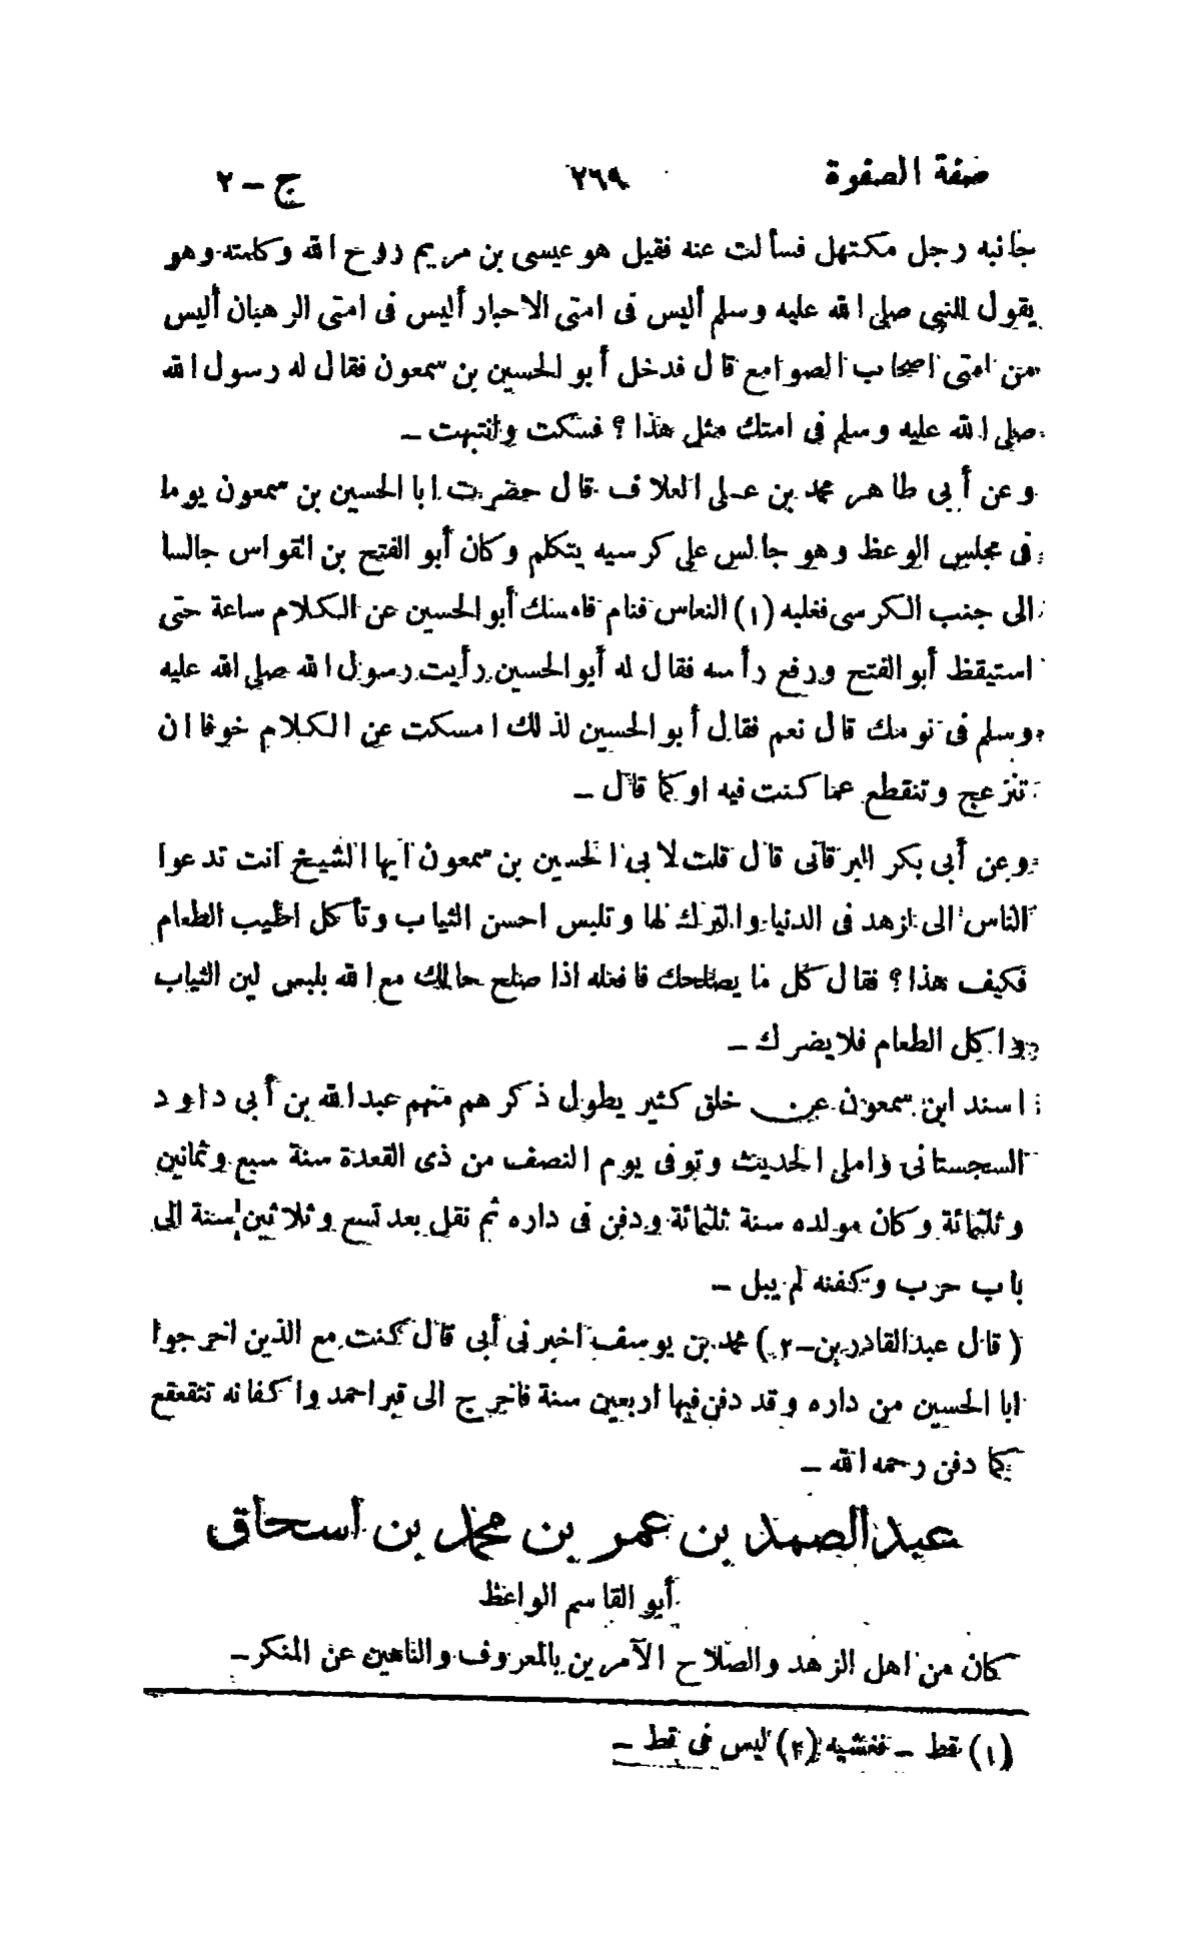 صفة الصفوة ٢٦٩ ج – ٢
جانبه رجل مكتهل فسألت عنه فقيل هو عيسى بن مريم روح الله وكلمته وهو
يقول للنبي صلى الله عليه وسلم أليس فى امتى الاحبار أليس فى امتى الرهبان أليس
من امتى اصحاب الصوامع قال فدخل أبو الحسين بن سمعون فقال له رسول الله
صلى الله عليه وسلم فى امتك مثل هذا ؟ فسكت وانتبهت –
وعن أبى طاهر محمد بن على العلاف قال حضرت ابا الحسين بن سمعون يوما
فى مجلس الوعظ وهو جالس على كرسيه يتكلم وكان أبو الفتح بن القواس جالسا
الى جنب الكرسى فغلبه (١) النعاس فنام فامسك أبو الحسين عن الكلام ساعة حتى
استيقظ أبو الفتح ورفع رأسه فقال له أبو الحسين رأيت رسول الله صلى الله عليه
وسلم فى نومك قال نعم فقال أبو الحسين لذلك امسكت عن الكلام خوفا ان
تنزعج وتنقطع عما كنت فيه او كما قال –
وعن أبى بكر البرقانى قال قلت لابى الحسين بن سمعون ايها الشيخ انت تدعوا
الناس الى ازهد فى الدنيا والترك لها وتلبس احسن الثياب وتأكل اطيب الطعام
فكيف هذا ؟ فقال كل ما يصلحك فافعله اذا صلح حالك مع الله بلبس لين الثياب
واكل الطعام فلا يضرك –
اسند ابن سمعون عن خلق كثير يطول ذكرهم منهم عبد الله بن أبى داود
السجستانى واملى الحديث وتوفى يوم النصف من ذى القعدة سنة سبع وثمانين
وثلثمائة وكان مولده سنة ثلثمائة ودفن فى داره ثم نقل بعد تسع وثلاثين سنة الى
باب حرب وكفنه لم يبل –
( قال عبد القادر بن – ٢ ) محمد بن يوسف اخبرنى أبى قال كنت مع الذين اخرجوا
ابا الحسين من داره وقد دفن فيها اربعين سنة فاخرج الى قبر احمد واكفانه تتقعقع
كما دفن رحمه الله –
عبد الصمد بن عمر بن محمد بن اسحاق
أبو القاسم الواعظ
كان من اهل الزهد والصلاح الآمرين بالمعروف والناهين عن المنكر –
(١) قط – فغشيه (٢) ليس فى قط –